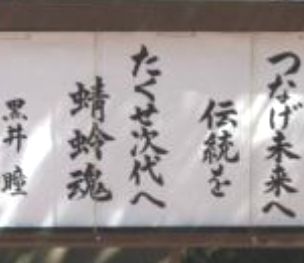 つなげ未来へ
伝統を
たくせ次代へ
蜻蛉魂
黒井瞳